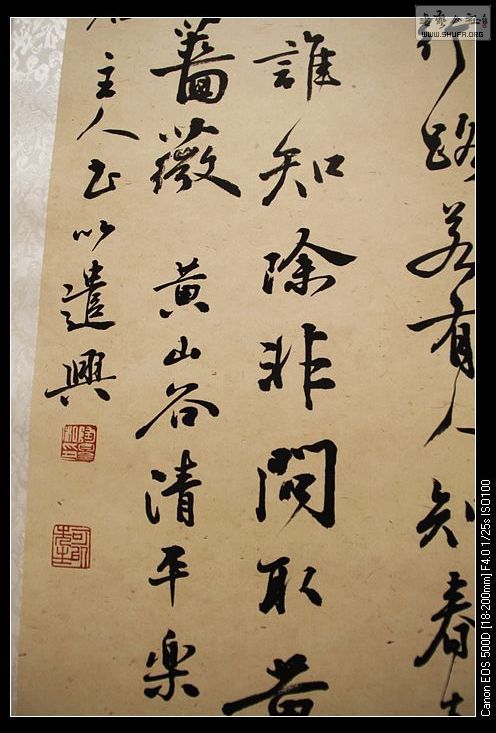 行路若有人知春
誰知除非問取黃
薔薇 黃山谷清平樂
主人書以遣興
書藝公社
WWW.SHUFA.ORG
Canon EOS 500D [18-200mm] F4.0 1/25s ISO100